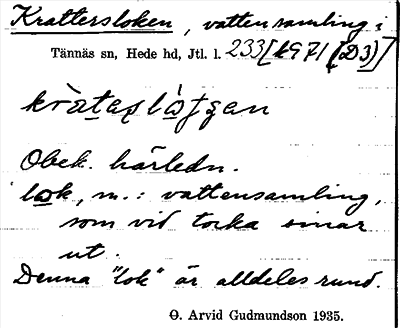 Krattersloken, vattensamling i
Tännäs sn, Hede hd, Jtl. l. 233[k971 (D3)]
Obek. härledn.
lok, m.: vattensamling,
som vid torka sinar
ut.
Denna "lok" är alldeles rund.
O. Arvid Gudmundson 1935.